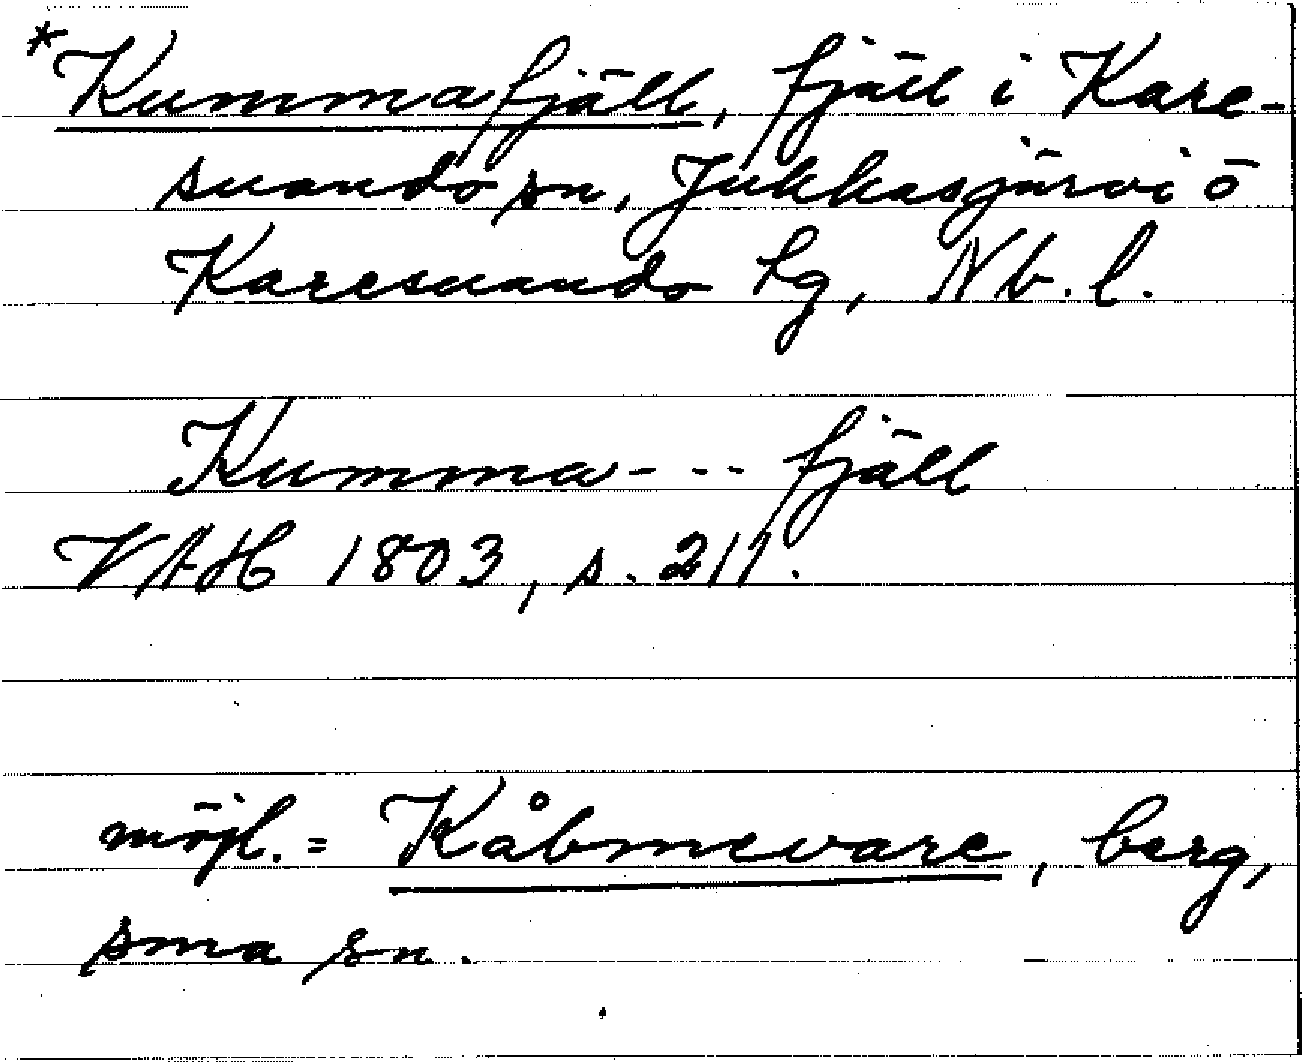 *Kummafjäll, fjäll i Kare-
suando sn, Jukkasjärvi o
Karesuando lg, Nb. l.
Kumma--- fjäll
VAH 1803, s. 211.
möjl. = Kåbmevare, berg,
sma sn.